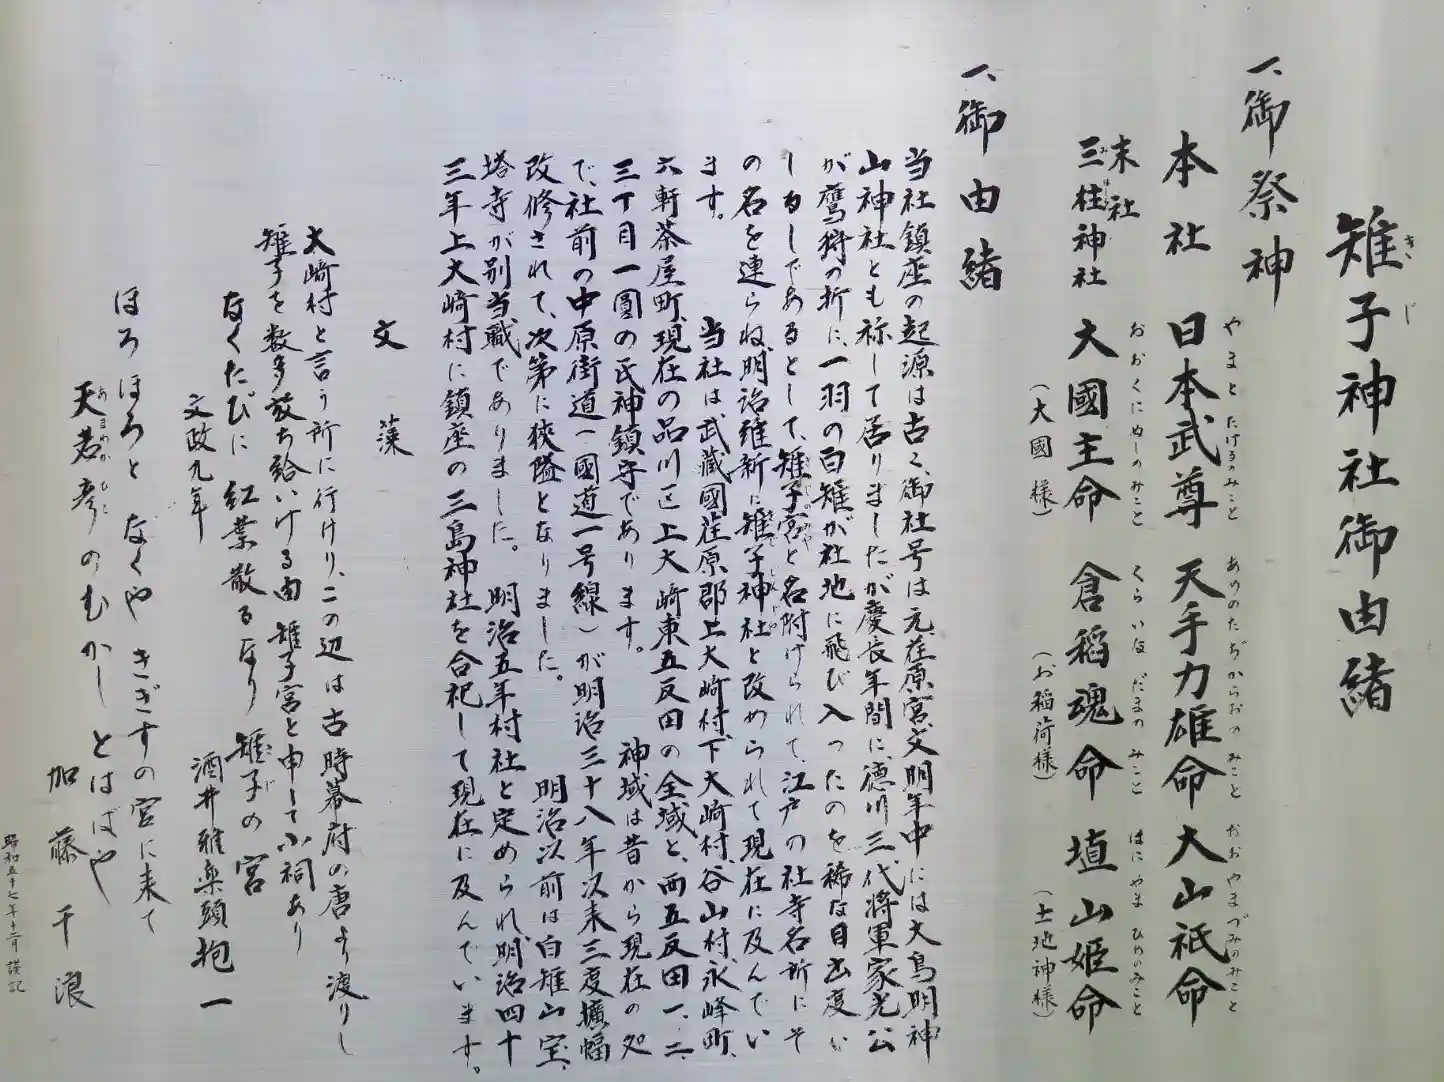 雉子神社御由緒
きじ
一、御祭神
本社 日本武尊 天手力雄命 大山祇命
やまとたけるのみこと あめのたぢからおのみこと おおやまづみのみこと
末社
三柱神社 大國主命 倉稲魂命 埴山姫命
みはしら おおくにぬしのみこと くらいなだまのみこと はにやまひめのみこと
(大國様) (お稲荷様) (土地神様)
一、御由緒
当社鎮座の起源は古く、御社号は元荏原宮、文明年中には大鳥明神
山神社とも称して居りましたが慶長年間に、徳川三代将軍家光公
が鷹狩の折に、一羽の白雉が社地に飛び入ったのを稀な目出度い
しるしであるとして、雉子宮と名附けられて、江戸の社寺名所にそ
の名を連らね、明治維新に雉子神社と改められて現在に及んでい
ます。 当社は武蔵國荏原郡上大崎村、下大崎村、谷山村、永峰町、
六軒茶屋町、現在の品川区上大崎東五反田の全域と、西五反田一、二、
三丁目一圓の氏神鎮守であります。 神域は昔から現在の処
で、社前の中原街道(國道一号線)が明治三十八年以来三度擴幅
改修されて、次第に狹隘となりました。 明治以前は白雉山宝
塔寺が別当職でありました。 明治五年村社と定められ、明治四十
三年上大崎村に鎮座の三島神社を合祀して現在に及んでいます。
文藻
大崎村と言う所に行けり、この辺は古時幕府の唐より渡りし
雉子を数多放ち給いける由 雉子宮と申して小祠あり
なくたびに 紅葉散るなり 雉子の宮
文政九年 酒井雅楽頭抱一
ほろほろと なくや きぎすの宮に来て
天若彦のむかしとはばや
あまわかひこ
加藤千浪
昭和五十七年十二月 謹記